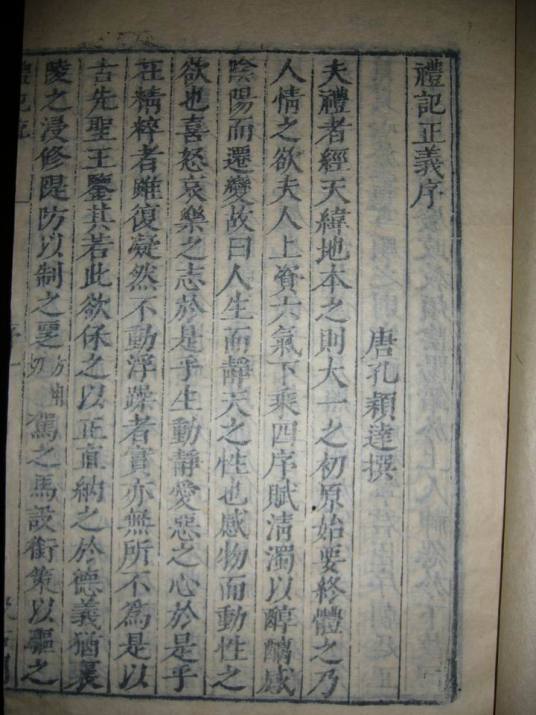 禮記正義序
唐孔穎達撰
夫禮者經天緯地本之則大一之初原始要終體之乃
人情之欲夫人上資六氣下乘四序賦清濁以醇醨感
陰陽而遷變故曰人生而靜天之性也感物而動性之
欲也喜怒哀樂之志於是乎生動靜愛惡之心於是乎
在精粹者雖復凝然不動浮躁者實亦無所不為是以
古先聖王鑒其若此欲保之以正直納之於德義猶襄
陵之浸修隄防以制之覂駕之馬設銜策以驅之
禮記疏